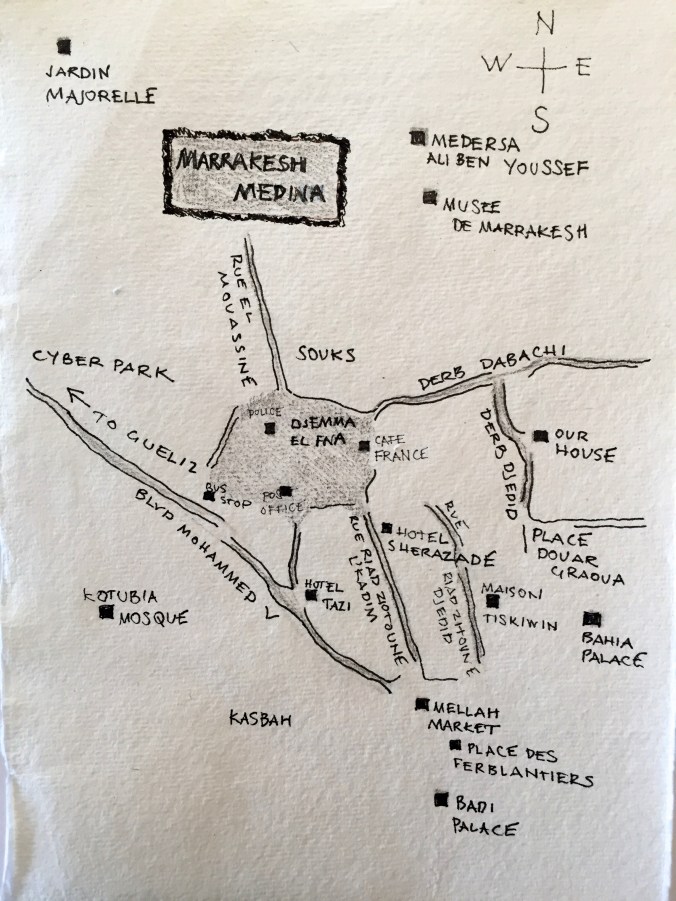 N
W E
S
JARDIN
MAJORELLE
MARRAKESH
MEDINA
MEDERSA
ALI BEN YOUSSEF
MUSEE
DE MARRAKESH
RUE EL
MOUASSINE
SOUKS
CYBER PARK
TO GUELIZ
DERB DABACHI
POLICE
DJEMMA
EL FNA
CAFE
FRANCE
DERB DJEDID
OUR
HOUSE
BUS
STOP
POST
OFFICE
BLVD MOHAMMED V
RUE RIAD ZIOTOUNE
L'KADIM
HOTEL
SHERAZADE
RUE
RIAD ZITOUNE
DJEDID
PLACE
DOUAR
GRAOUA
HOTEL
TAZI
MAISON
TISKIWIN
KOTUBIA
MOSQUE
BAHIA
PALACE
KASBAH
MELLAH
MARKET
PLACE DES
FERBLANTIERS
BADI
PALACE